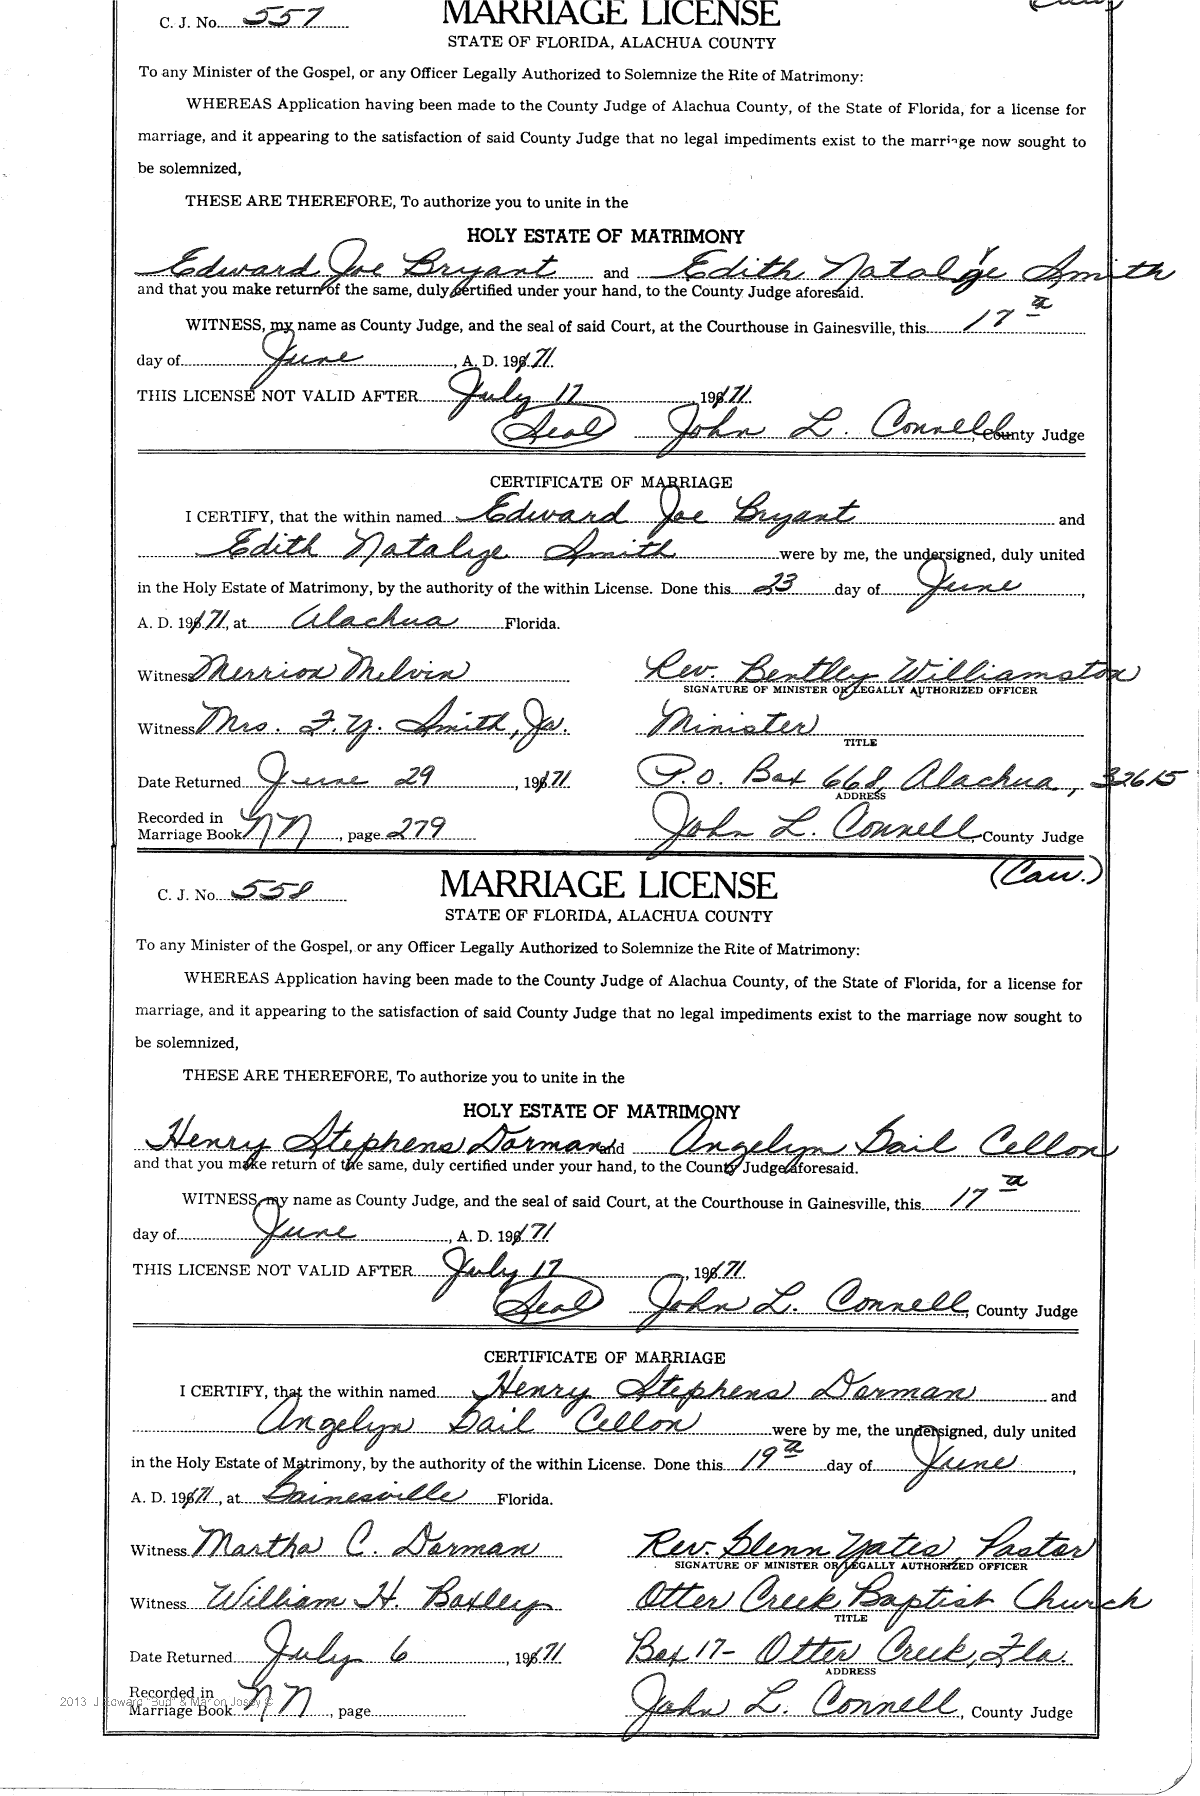 C. J. No. 557
MARRIAGE LICENSE
STATE OF FLORIDA, ALACHUA COUNTY
To any Minister of the Gospel, or any Officer Legally Authorized to Solemnize the Rite of Matrimony:
WHEREAS Application having been made to the County Judge of Alachua County, of the State of Florida, for a license for
marriage, and it appearing to the satisfaction of said County Judge that no legal impediments exist to the marriage now sought to
be solemnized,
THESE ARE THEREFORE, To authorize you to unite in the
HOLY ESTATE OF MATRIMONY
Edward Joe Bryant and Edith Natalye Smith
and that you make return of the same, duly certified under your hand, to the County Judge aforesaid.
WITNESS, my name as County Judge, and the seal of said Court, at the Courthouse in Gainesville, this 17th
day of June, A. D. 1971.
THIS LICENSE NOT VALID AFTER July 17, 1971.
(Seal) John L. Connell, County Judge
CERTIFICATE OF MARRIAGE
I CERTIFY, that the within named Edward Joe Bryant and
Edith Natalye Smith were by me, the undersigned, duly united
in the Holy Estate of Matrimony, by the authority of the within License. Done this 23 day of June,
A. D. 1971, at Alachua Florida.
Witness Merrion Melvin Rev. Bentley Williamston
SIGNATURE OF MINISTER OR LEGALLY AUTHORIZED OFFICER
Witness Mrs. F. Y. Smith, Jr. Minister
TITLE
Date Returned June 29, 1971 P.O. Box 668, Alachua, 32615
ADDRESS
Recorded in
Marriage Book NN, page 279 John L. Connell, County Judge
(Cau.)
C. J. No. 558
MARRIAGE LICENSE
STATE OF FLORIDA, ALACHUA COUNTY
To any Minister of the Gospel, or any Officer Legally Authorized to Solemnize the Rite of Matrimony:
WHEREAS Application having been made to the County Judge of Alachua County, of the State of Florida, for a license for
marriage, and it appearing to the satisfaction of said County Judge that no legal impediments exist to the marriage now sought to
be solemnized,
THESE ARE THEREFORE, To authorize you to unite in the
HOLY ESTATE OF MATRIMONY
Henry Stephens Dorman and Angelyn Gail Cellon
and that you make return of the same, duly certified under your hand, to the County Judge aforesaid.
WITNESS, my name as County Judge, and the seal of said Court, at the Courthouse in Gainesville, this 17th
day of June, A. D. 1971
THIS LICENSE NOT VALID AFTER July 17, 1971.
(Seal) John L. Connell, County Judge
CERTIFICATE OF MARRIAGE
I CERTIFY, that the within named Henry Stephens Dorman and
Angelyn Gail Cellon were by me, the undersigned, duly united
in the Holy Estate of Matrimony, by the authority of the within License. Done this 19th day of June,
A. D. 1971, at Gainesville Florida.
Witness Martha C. Dorman Rev. Glenn Yates, Pastor
SIGNATURE OF MINISTER OR LEGALLY AUTHORIZED OFFICER
Witness William H. Baxley Otter Creek Baptist Church
TITLE
Date Returned July 6, 1971 Box 17- Otter Creek, Fla.
ADDRESS
Recorded in
2013 J Edward "Bud" & Marion Josey ©
Marriage Book NN, page John L. Connell, County Judge